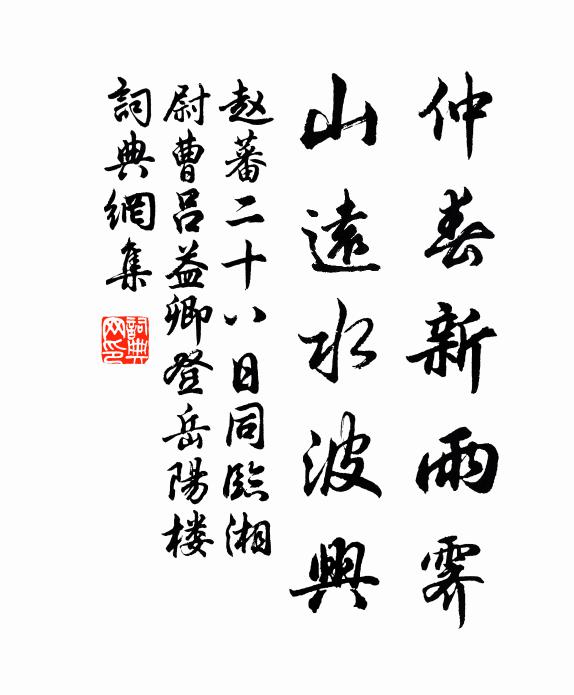 仲春新雨霽
山遠水波興
赵蕃二十八日同臨湘
尉曹呂益卿登岳陽楼
詞典網集
詞典网印